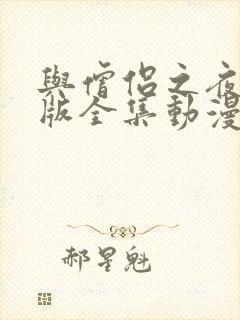 與僧侶之夜
版全集動漫
郝星魁